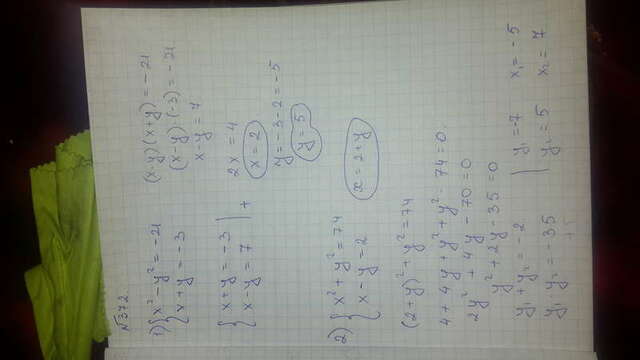 №372
1) { x² - y² = -21
{ x + y = -3
(x-y)(x+y) = -21
(x-y)·(-3) = -21
x - y = 7
{ x + y = -3
{ x - y = 7 | +
2x = 4
x = 2
y = -3-2 = -5
y = 5
2) { x² + y² = 74
{ x - y = 2
x = 2+y
(2+y)² + y² = 74
4 + 4y + y² + y² - 74 = 0
2y² + 4y - 70 = 0
y² + 2y - 35 = 0
y₁ + y₂ = -2
y₁ y₂ = -35
y₁ = -7
y₂ = 5
x₁ = -5
x₂ = 7